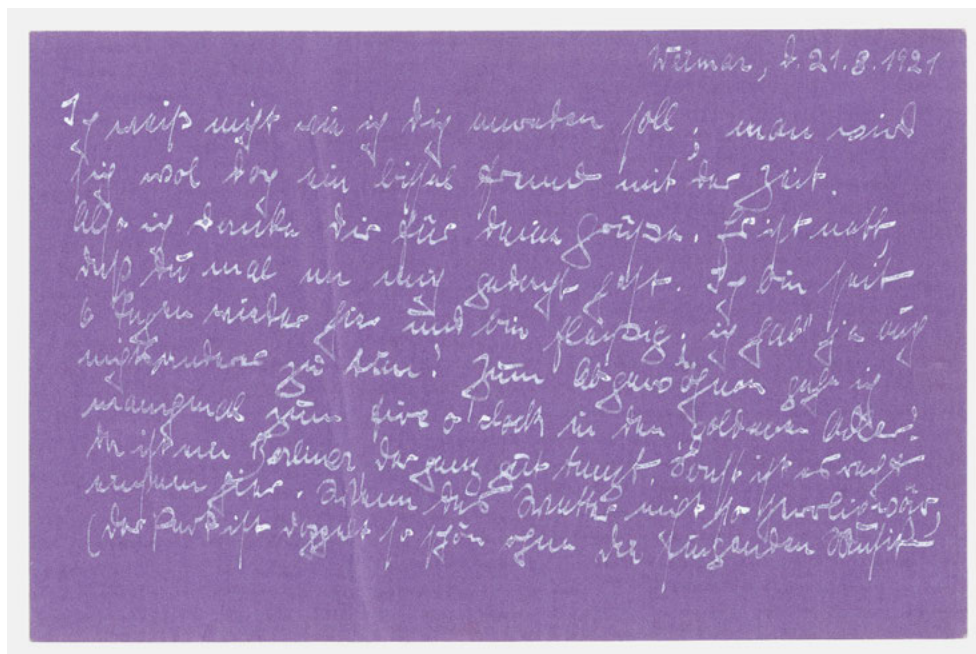 Weimar, d. 21.8.1921
Ich weiß nicht wie ich dich anreden soll, man wird
sich wol doch ein bissel fremd mit der Zeit.
Also ich danke dir für deine Grüße. Es ist nett,
daß du mal an mich gedacht hast. Ich bin seit
6 Tagen wieder hier und bin fleißig, ich hab ja auch
nichts anderes zu tun! Zum Abgewöhnen gehe ich
manchmal zum five o'clock in den goldenen Adler.
Da ist ein Berliner, der ganz gut tanzt. Sonst ist es recht
einsam hier. Wenn das Wetter nicht so herrlich wär,
(der Park ist doppelt so schön ohne die